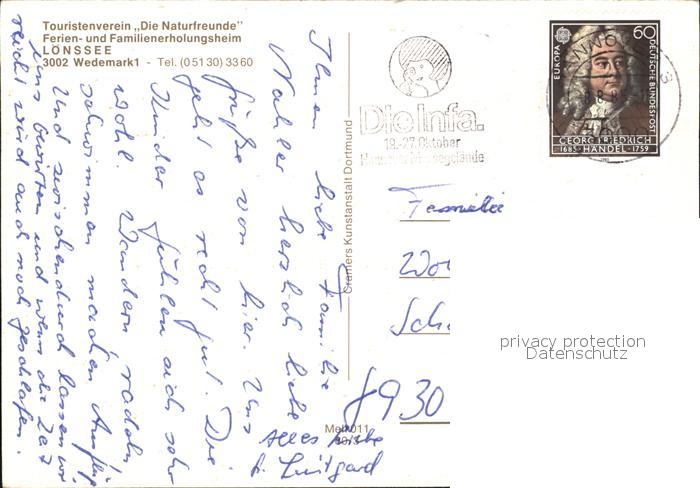 Touristenverein „Die Naturfreunde"
Ferien- und Familienerholungsheim
LÖNSSEE
3002 Wedemark1 - Tel. (05130) 3360
Ihnen liebe Familie
herzlich liebe
Grüße von hier. Uns
geht es recht gut. Die
Kinder fühlen sich sehr
wohl. Wandern radeln
schwimmen machen Ausflüge
Und zwischendurch lassen wir
uns bewirten und wenn die Zeit
reicht wird auch noch geschlafen.
Alles Liebe
Luitgard
Cramers Kunstanstalt Dortmund
Die Infa.
18.-27. Oktober
Hannover Messegelände
EUROPA
60
DEUTSCHE BUNDESPOST
GEORG FRIEDRICH
1685 HÄNDEL 1759
HANNOVER
3
Familie
8930
privacy protection
Datenschutz